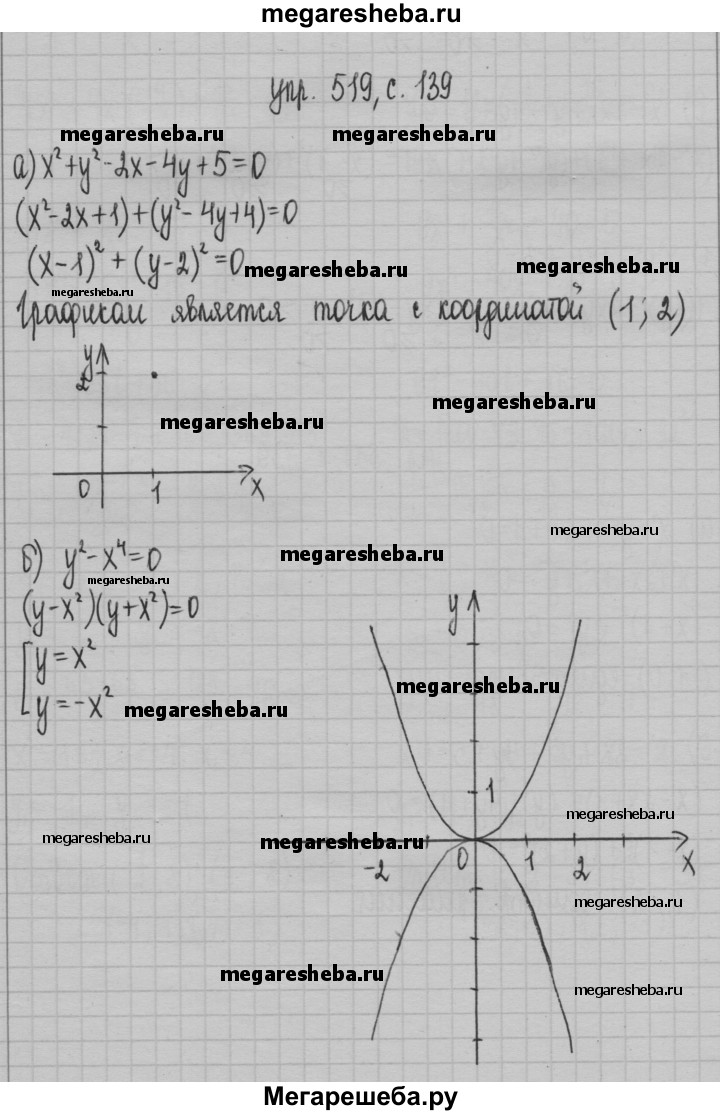 megaresheba.ru
упр. 519, с. 139
megaresheba.ru megaresheba.ru
а) x²+y²-2x-4y+5=0
(x²-2x+1)+(y²-4y+4)=0
(x-1)²+(y-2)²=0 megaresheba.ru megaresheba.ru
megaresheba.ru
Графикам является точка с координатой (1; 2)
y
2
megaresheba.ru
megaresheba.ru
0 1 x
megaresheba.ru
б) y²-x⁴=0 megaresheba.ru
megaresheba.ru
(y-x²)(y+x²)=0
y
[y=x²
megaresheba.ru
y=-x² megaresheba.ru
1
megaresheba.ru
megaresheba.ru megaresheba.ru
-2 0 1 2 x
megaresheba.ru
megaresheba.ru
megaresheba.ru
Мегарешеба.ру